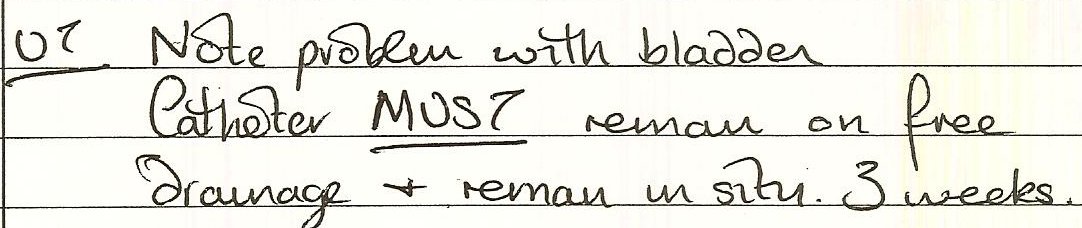 OT Note problem with bladder
Catheter MUST remain on free
drainage + remain in situ. 3 weeks.